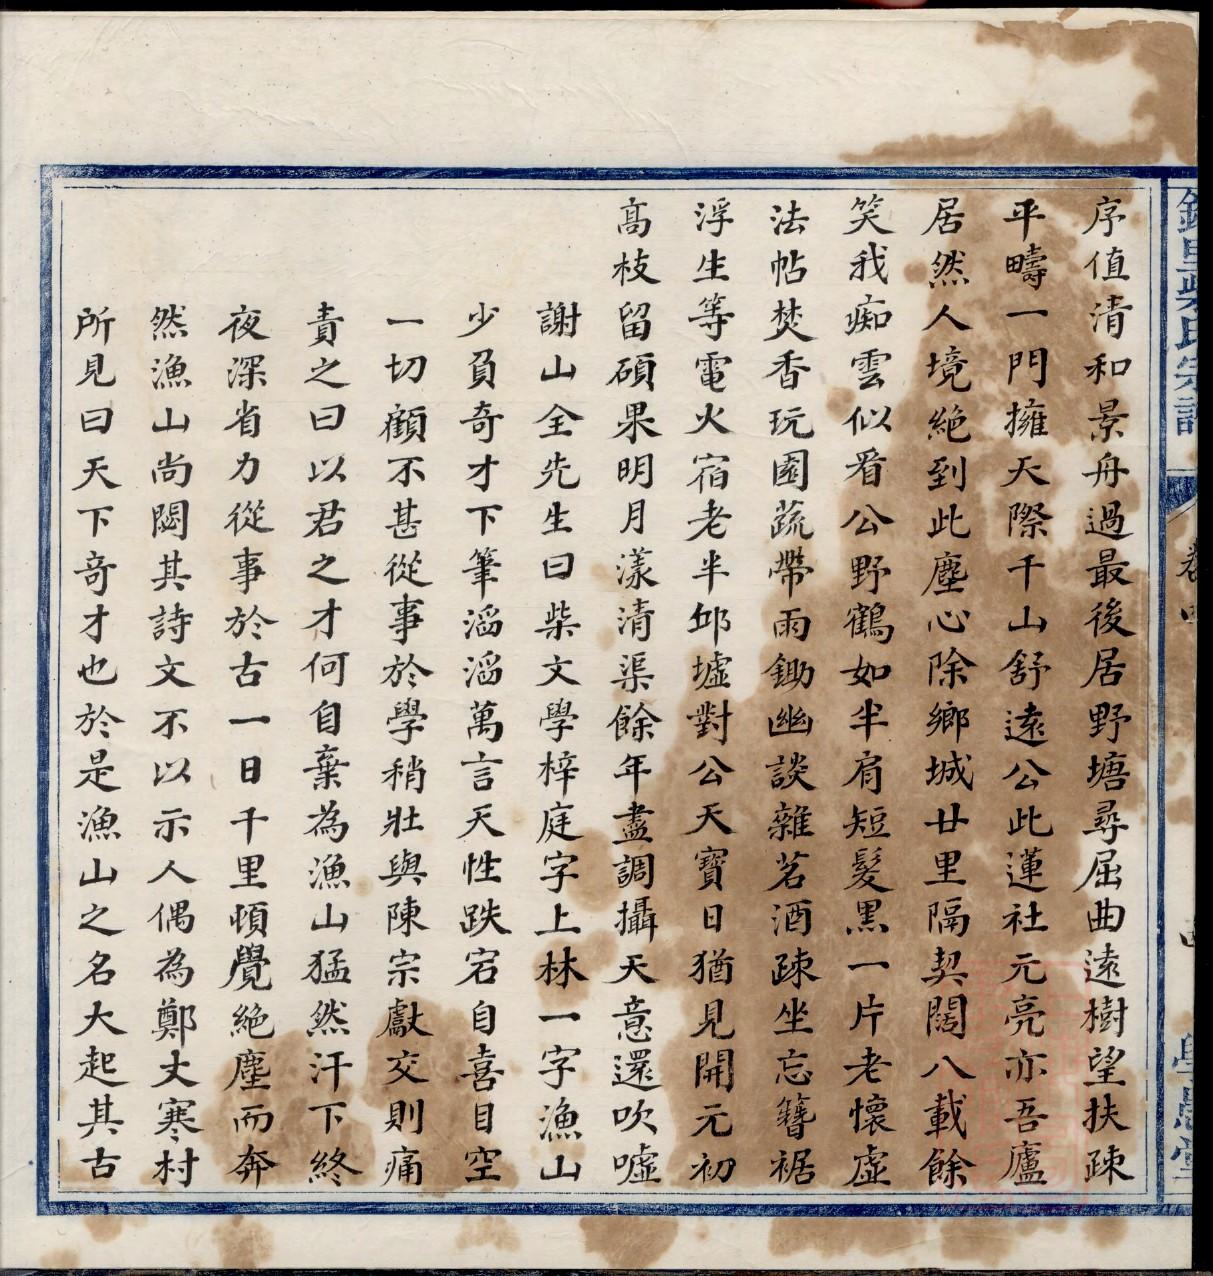 序值清和景舟過最後居野塘尋屈曲遠樹望扶疎
平疇一門擁天際千山舒遠公此蓮社元亮亦吾廬
居然人境絕到此塵心除鄉城廿里隔契闊八載餘
笑我痴雲似看公野鶴如半肩短髮黑一片老懷虛
法帖焚香玩園蔬帶雨鋤幽談雜茗酒疎坐忘簪裾
浮生等電火宿老半邱墟對公天寶日猶見開元初
高枝留碩果明月漾清渠餘年盡調攝天意還吹噓
謝山全先生曰柴文學梓庭字上林一字漁山
少負奇才下筆滔滔萬言天性跌宕自喜目空
一切顧不甚從事於學稍壯與陳宗獻交則痛
責之曰以君之才何自棄為漁山猛然汗下終
夜深省力從事於古一日千里頓覺絕塵而奔
然漁山尚閟其詩文不以示人偶為鄭丈寒村
所見曰天下奇才也於是漁山之名大起其古
柴氏宗譜
卷四
四